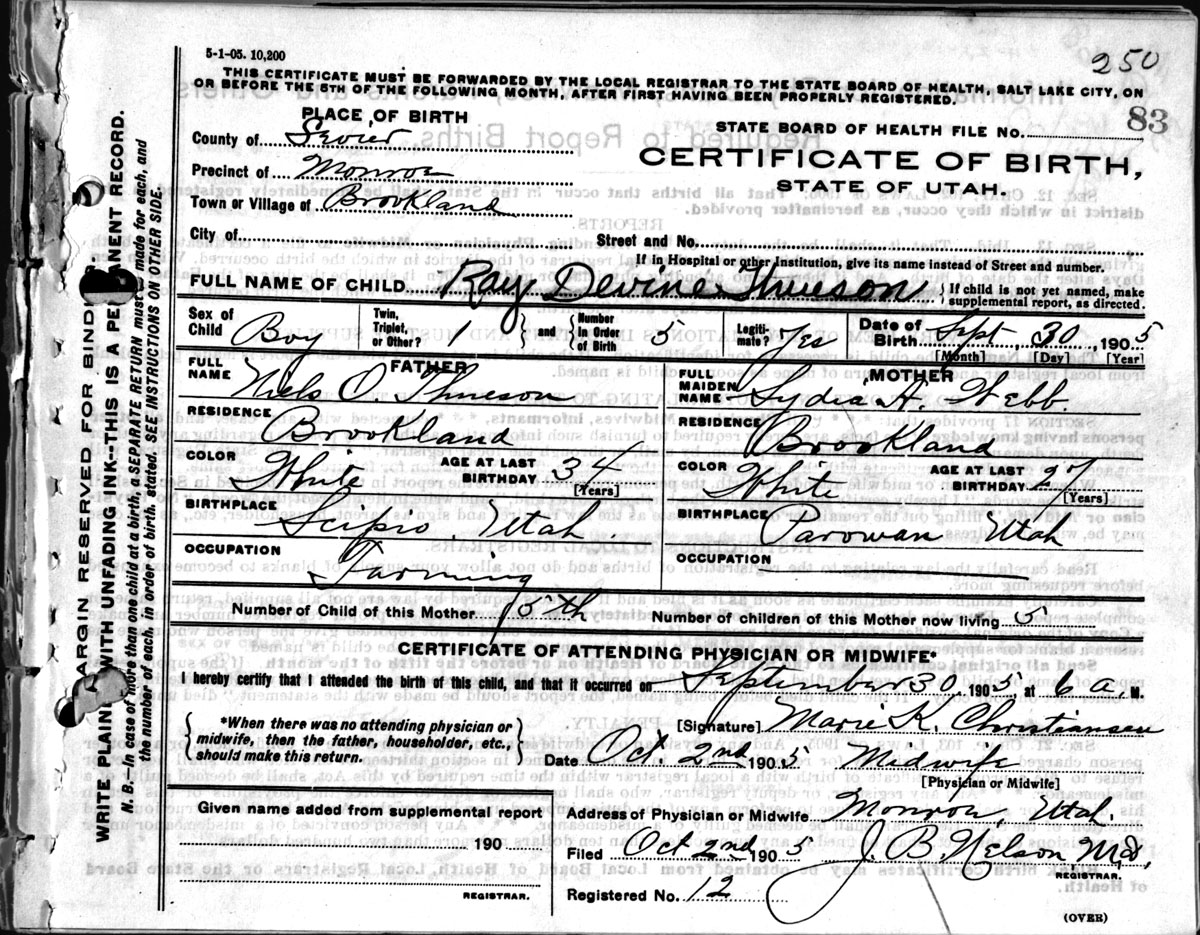 5-1-05. 10,200
250
THIS CERTIFICATE MUST BE FORWARDED BY THE LOCAL REGISTRAR TO THE STATE BOARD OF HEALTH, SALT LAKE CITY, ON
OR BEFORE THE 5TH OF THE FOLLOWING MONTH, AFTER FIRST HAVING BEEN PROPERLY REGISTERED.
PLACE OF BIRTH
County of Sevier
Precinct of Monroe
Town or Village of Brookland
STATE BOARD OF HEALTH FILE NO. 83
CERTIFICATE OF BIRTH,
STATE OF UTAH.
City of Street and No.
If in Hospital or other Institution, give its name instead of Street and number.
FULL NAME OF CHILD Ray Devine Thueson { If child is not yet named, make supplemental report, as directed.
Sex of Child Boy Twin, Triplet, or Other? 1 } and { Number in Order of Birth 5 Legitimate? Yes Date of Birth Sept 30 1905
[Month] [Day] [Year]
FATHER
FULL NAME Niels O Thueson
RESIDENCE Brookland
COLOR White AGE AT LAST BIRTHDAY 34 [Years]
BIRTHPLACE Scipio, Utah.
OCCUPATION Farming
MOTHER
FULL MAIDEN NAME Lydia A. Webb.
RESIDENCE Brookland
COLOR White AGE AT LAST BIRTHDAY 27 [Years]
BIRTHPLACE Parowan Utah
OCCUPATION
Number of Child of this Mother 5th Number of children of this Mother now living 5
CERTIFICATE OF ATTENDING PHYSICIAN OR MIDWIFE*
I hereby certify that I attended the birth of this child, and that it occurred on September 30 1905, at 6 a. M.
{ *When there was no attending physician or
midwife, then the father, householder, etc.,
should make this return. }
[Signature] Marie K. Christiansen
Date Oct. 2nd 1905 Midwife
[Physician or Midwife]
Given name added from supplemental report
190
REGISTRAR.
Address of Physician or Midwife Monroe, Utah.
Filed Oct 2nd 1905 J. B. Nelson, Md,
REGISTRAR.
Registered No. 12
(OVER)
MARGIN RESERVED FOR BINDING.
WRITE PLAINLY WITH UNFADING INK--THIS IS A PERMANENT RECORD.
N. B.--In case of more than one child at a birth, a SEPARATE RETURN must be made for each, and
the number of each, in order of birth, stated. SEE INSTRUCTIONS ON OTHER SIDE.